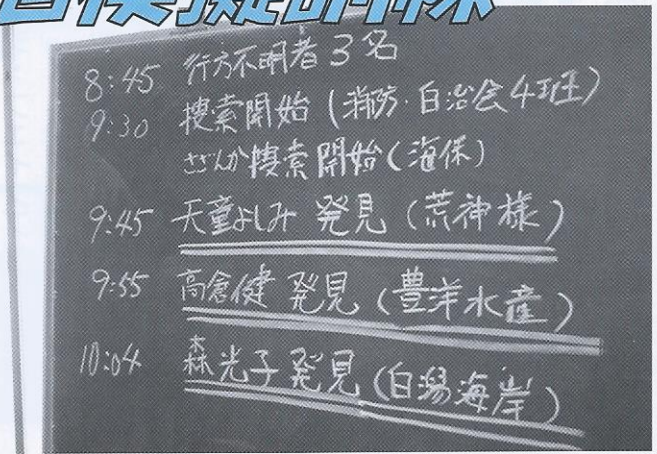 模擬訓練
8:45 行方不明者3名
9:30 捜索開始（消防・自治会4班）
さざんか捜索開始（海保）
9:45 天童よしみ 発見（荒神様）
9:55 高倉健 発見（豊洋水産）
10:04 森光子 発見（白潟海岸）